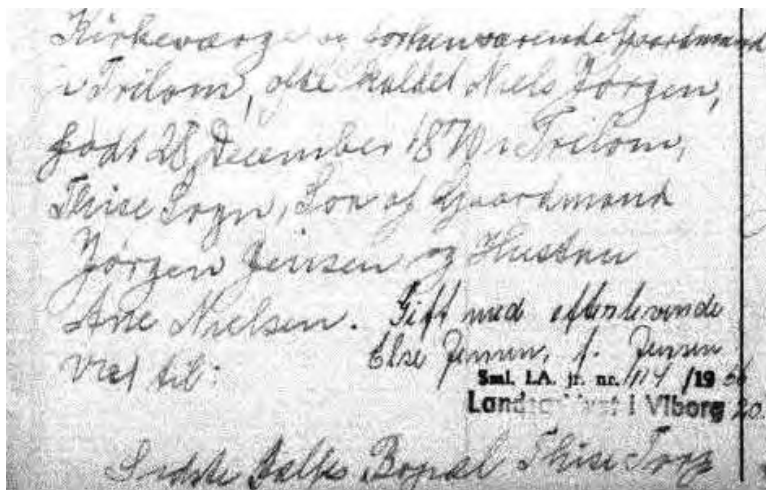 Kirkeværge og forhenværende Gaardmand
i Trilom, ofte kaldet Niels Jørgen,
født 28 December 1870 i Trilom,
Thise Sogn, Søn af Gaardmand
Jørgen Jensen og Hustru
Ane Nielsen. Gift med efterlevende
Else Jensen, f. Jensen
Viet til:
Sml. LA. jr. nr. 1114 /19 56
Landsarkivet i Viborg
Sidste fælles Bopæl Thise-Torp